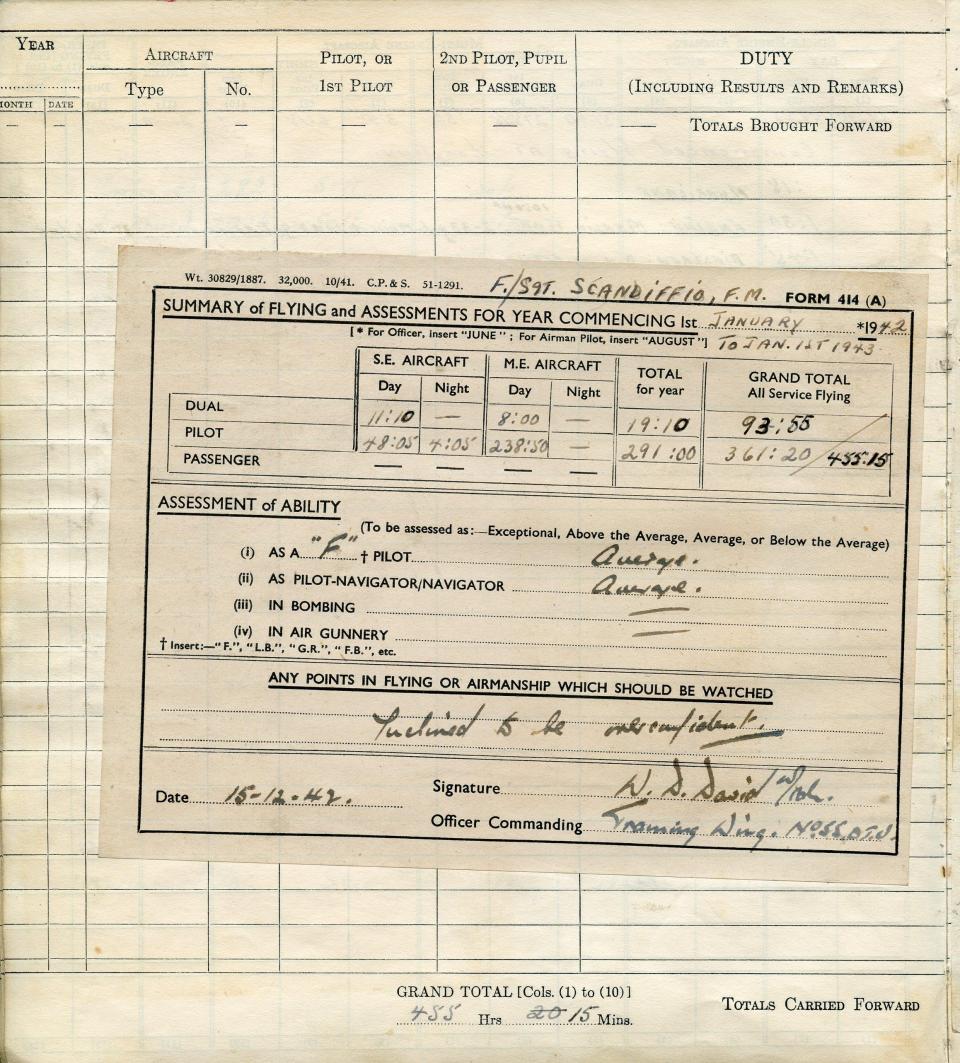 YEAR
AIRCRAFT
PILOT, OR
1ST PILOT
2ND PILOT, PUPIL
OR PASSENGER
DUTY
(INCLUDING RESULTS AND REMARKS)
Type No.
MONTH DATE
— — — — — —— TOTALS BROUGHT FORWARD
Wt. 30829/1887. 32,000. 10/41. C.P. & S. 51-1291. F./SGT. SCANDIFFIO, F.M. FORM 414 (A)
SUMMARY of FLYING and ASSESSMENTS FOR YEAR COMMENCING 1st JANUARY *1942
[* For Officer, insert "JUNE" ; For Airman Pilot, insert "AUGUST"] TO JAN. 1ST 1943.
S.E. AIRCRAFT M.E. AIRCRAFT TOTAL for year GRAND TOTAL All Service Flying
Day Night Day Night
DUAL 11:10 — 8:00 — 19:10 93:55
PILOT 48:05 4:05 238:50 — 291:00 361:20 / 455:15
PASSENGER — — — —
ASSESSMENT of ABILITY
(To be assessed as:—Exceptional, Above the Average, Average, or Below the Average)
(i) AS A "F" † PILOT Average.
(ii) AS PILOT-NAVIGATOR/NAVIGATOR Average.
(iii) IN BOMBING —
(iv) IN AIR GUNNERY —
† Insert:—"F.", "L.B.", "G.R.", "F.B.", etc.
ANY POINTS IN FLYING OR AIRMANSHIP WHICH SHOULD BE WATCHED
Inclined to be overconfident.
Date 15-12-42. Signature W. D. David W/Cdr.
Officer Commanding Training Wing. No 55 O.T.U.
GRAND TOTAL [Cols. (1) to (10)]
455 Hrs 20 15 Mins.
TOTALS CARRIED FORWARD